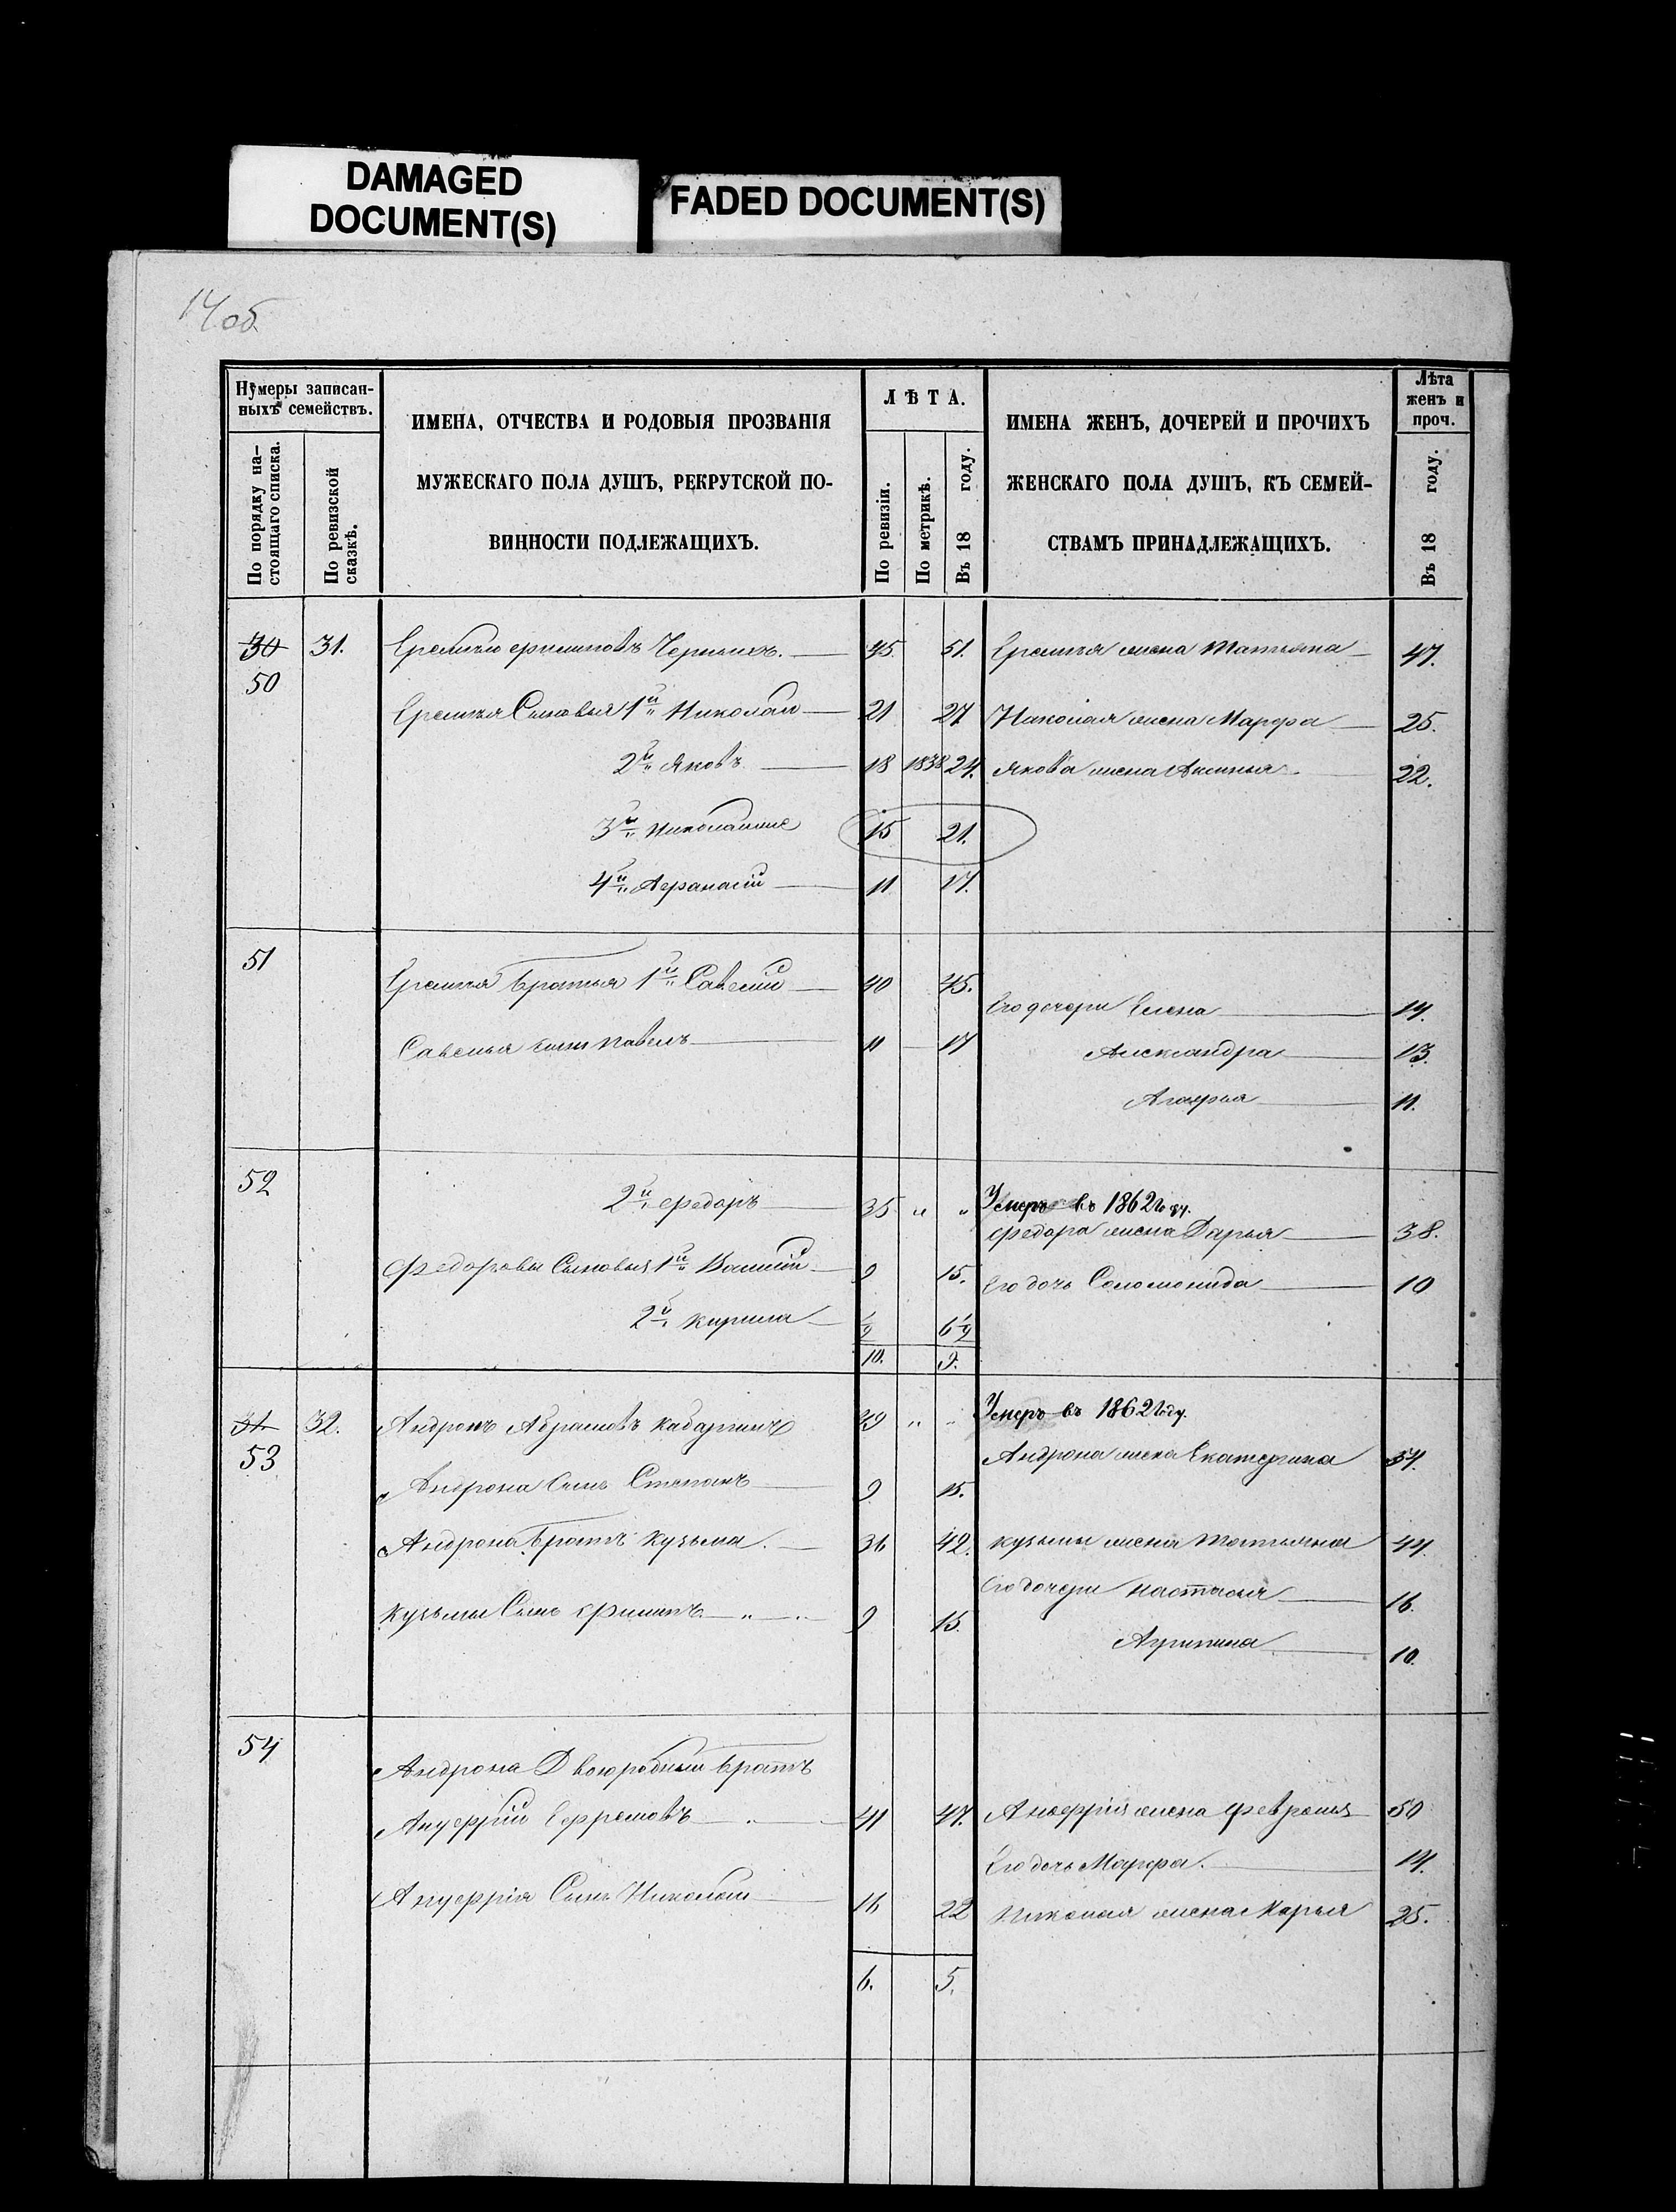 DAMAGED
DOCUMENT(S)
FADED DOCUMENT(S)
14 об.
Нумеры записан-
ныхъ семействъ.
По порядку на-
стоящаго списка.
По ревизской
сказкѣ.
ИМЕНА, ОТЧЕСТВА И РОДОВЫЯ ПРОЗВАНІЯ
МУЖЕСКАГО ПОЛА ДУШЪ, РЕКРУТСКОЙ ПО-
ВИННОСТИ ПОДЛЕЖАЩИХЪ.
ЛѢТА.
По ревизіи.
По метрикѣ.
Въ 18 году.
ИМЕНА ЖЕНЪ, ДОЧЕРЕЙ И ПРОЧИХЪ
ЖЕНСКАГО ПОЛА ДУШЪ, КЪ СЕМЕЙ-
СТВАМЪ ПРИНАДЛЕЖАЩИХЪ.
Лѣта
женъ и
проч.
Въ 18 году.
30 31. Еремѣй филиповъ Черныхъ. 45. 51. Еремѣя жена Татьяна 47.
50
Еремѣя Сыновья 1й Николай 21 27 Николая жена Марфа 25.
2й Яковъ 18 1838 24. Якова жена Аксинья 22.
3й 15 21.
4й Афанасій 11 17.
51
Еремѣя братья 1й Савелій 40 45.
Его дочери Елена 14.
Савелья сынъ Павелъ 11 17
Александра 13.
Агафья 11.
52
2й федоръ 35 „ „ Умеръ въ 1862 году.
федора жена Дарья 38.
Федоровы Сыновья 1й Василій 9 15.
Его дочь Соломонида 10
2й Кирила ½ 6½
10. 9.
31. 32. Андронъ Абрамовъ Кабаргинъ 39 „ „ Умеръ въ 1862 году.
53
Андрона жена Екатерина
Андрона Сынъ Степанъ 9 15.
Андрона братъ Кузьма. 36 42. Кузьмы жена Татьяна 44.
Его дочери Настасья 16.
Кузьмы Сынъ филипъ 9 15.
Агрипина 10.
54
Андрона Двоюродный братъ
Ануфрій Ефремовъ 41 47. Ануфрія жена февронья 50
Его дочь Марфа. 14.
Ануфрія Сынъ Николай 16 22
Николая жена Марья 25.
6. 5.